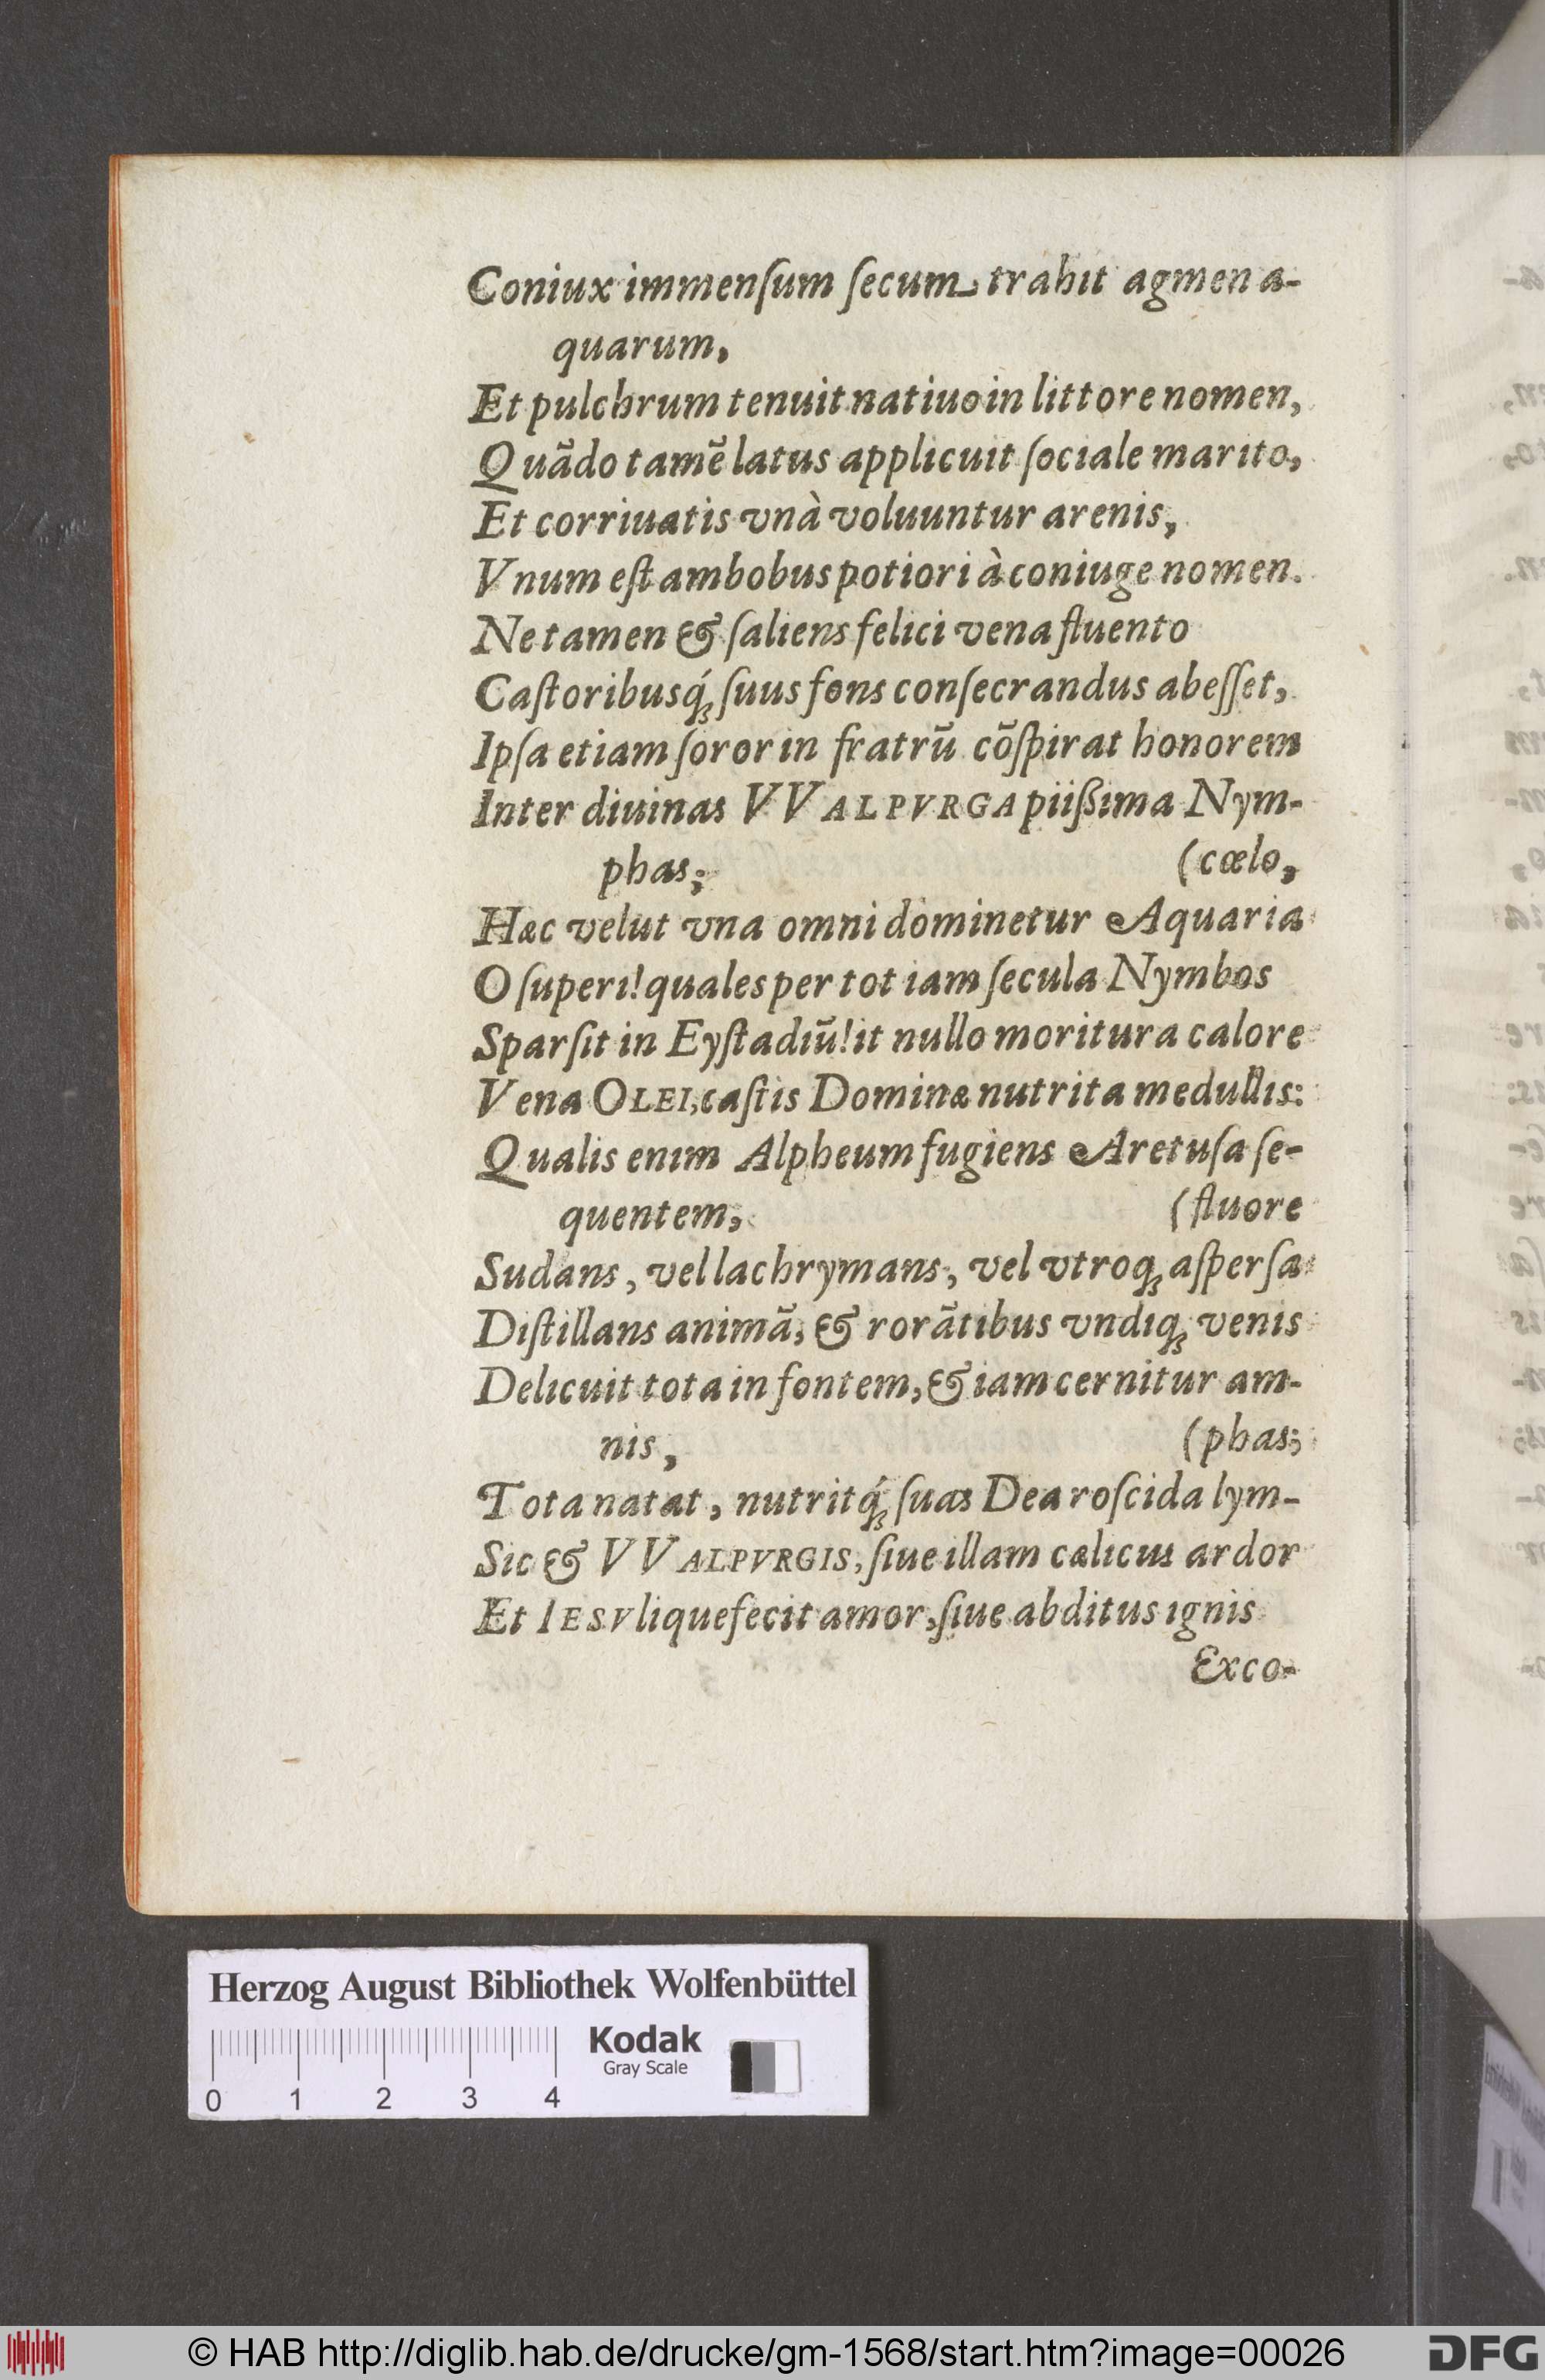 Coniux immenſum ſecum trahit agmen a-
quarum,
Et pulchrum tenuit natiuo in littore nomen,
Quādo tamē latus applicuit ſociale marito,
Et corriuatis vnà voluuntur arenis,
Vnum eſt ambobus potiori à coniuge nomen.
Ne tamen & ſaliens felici vena fluento
Caſtoribusq́; ſuus fons conſecrandus abeſſet,
Ipſa etiam ſoror in fratrū cōſpirat honorem
Inter diuinas VVALPVRGA piißima Nym-
phas; (cœlo,
Hæc velut vna omni dominetur Aquaria
O ſuperi! quales per tot iam ſecula Nymbos
Sparſit in Eyſtadiū! it nullo moritura calore
Vena OLEI, caſtis Dominæ nutrita medullis:
Qualis enim Alpheum fugiens Aretuſa ſe-
quentem, (fluore
Sudans, vel lachrymans, vel vtroq; aſperſa
Diſtillans animā, & rorātibus vndiq; venis
Delicuit tota in fontem, & iam cernitur am-
nis, (phas;
Tota natat, nutritq́; ſuas Dea roſcida lym-
Sic & VVALPVRGIS, ſiue illam cælicus ardor
Et IESV liquefecit amor, ſiue abditus ignis
Exco-
Herzog August Bibliothek Wolfenbüttel
Kodak
Gray Scale
0 1 2 3 4
© HAB http://diglib.hab.de/drucke/gm-1568/start.htm?image=00026
DFG